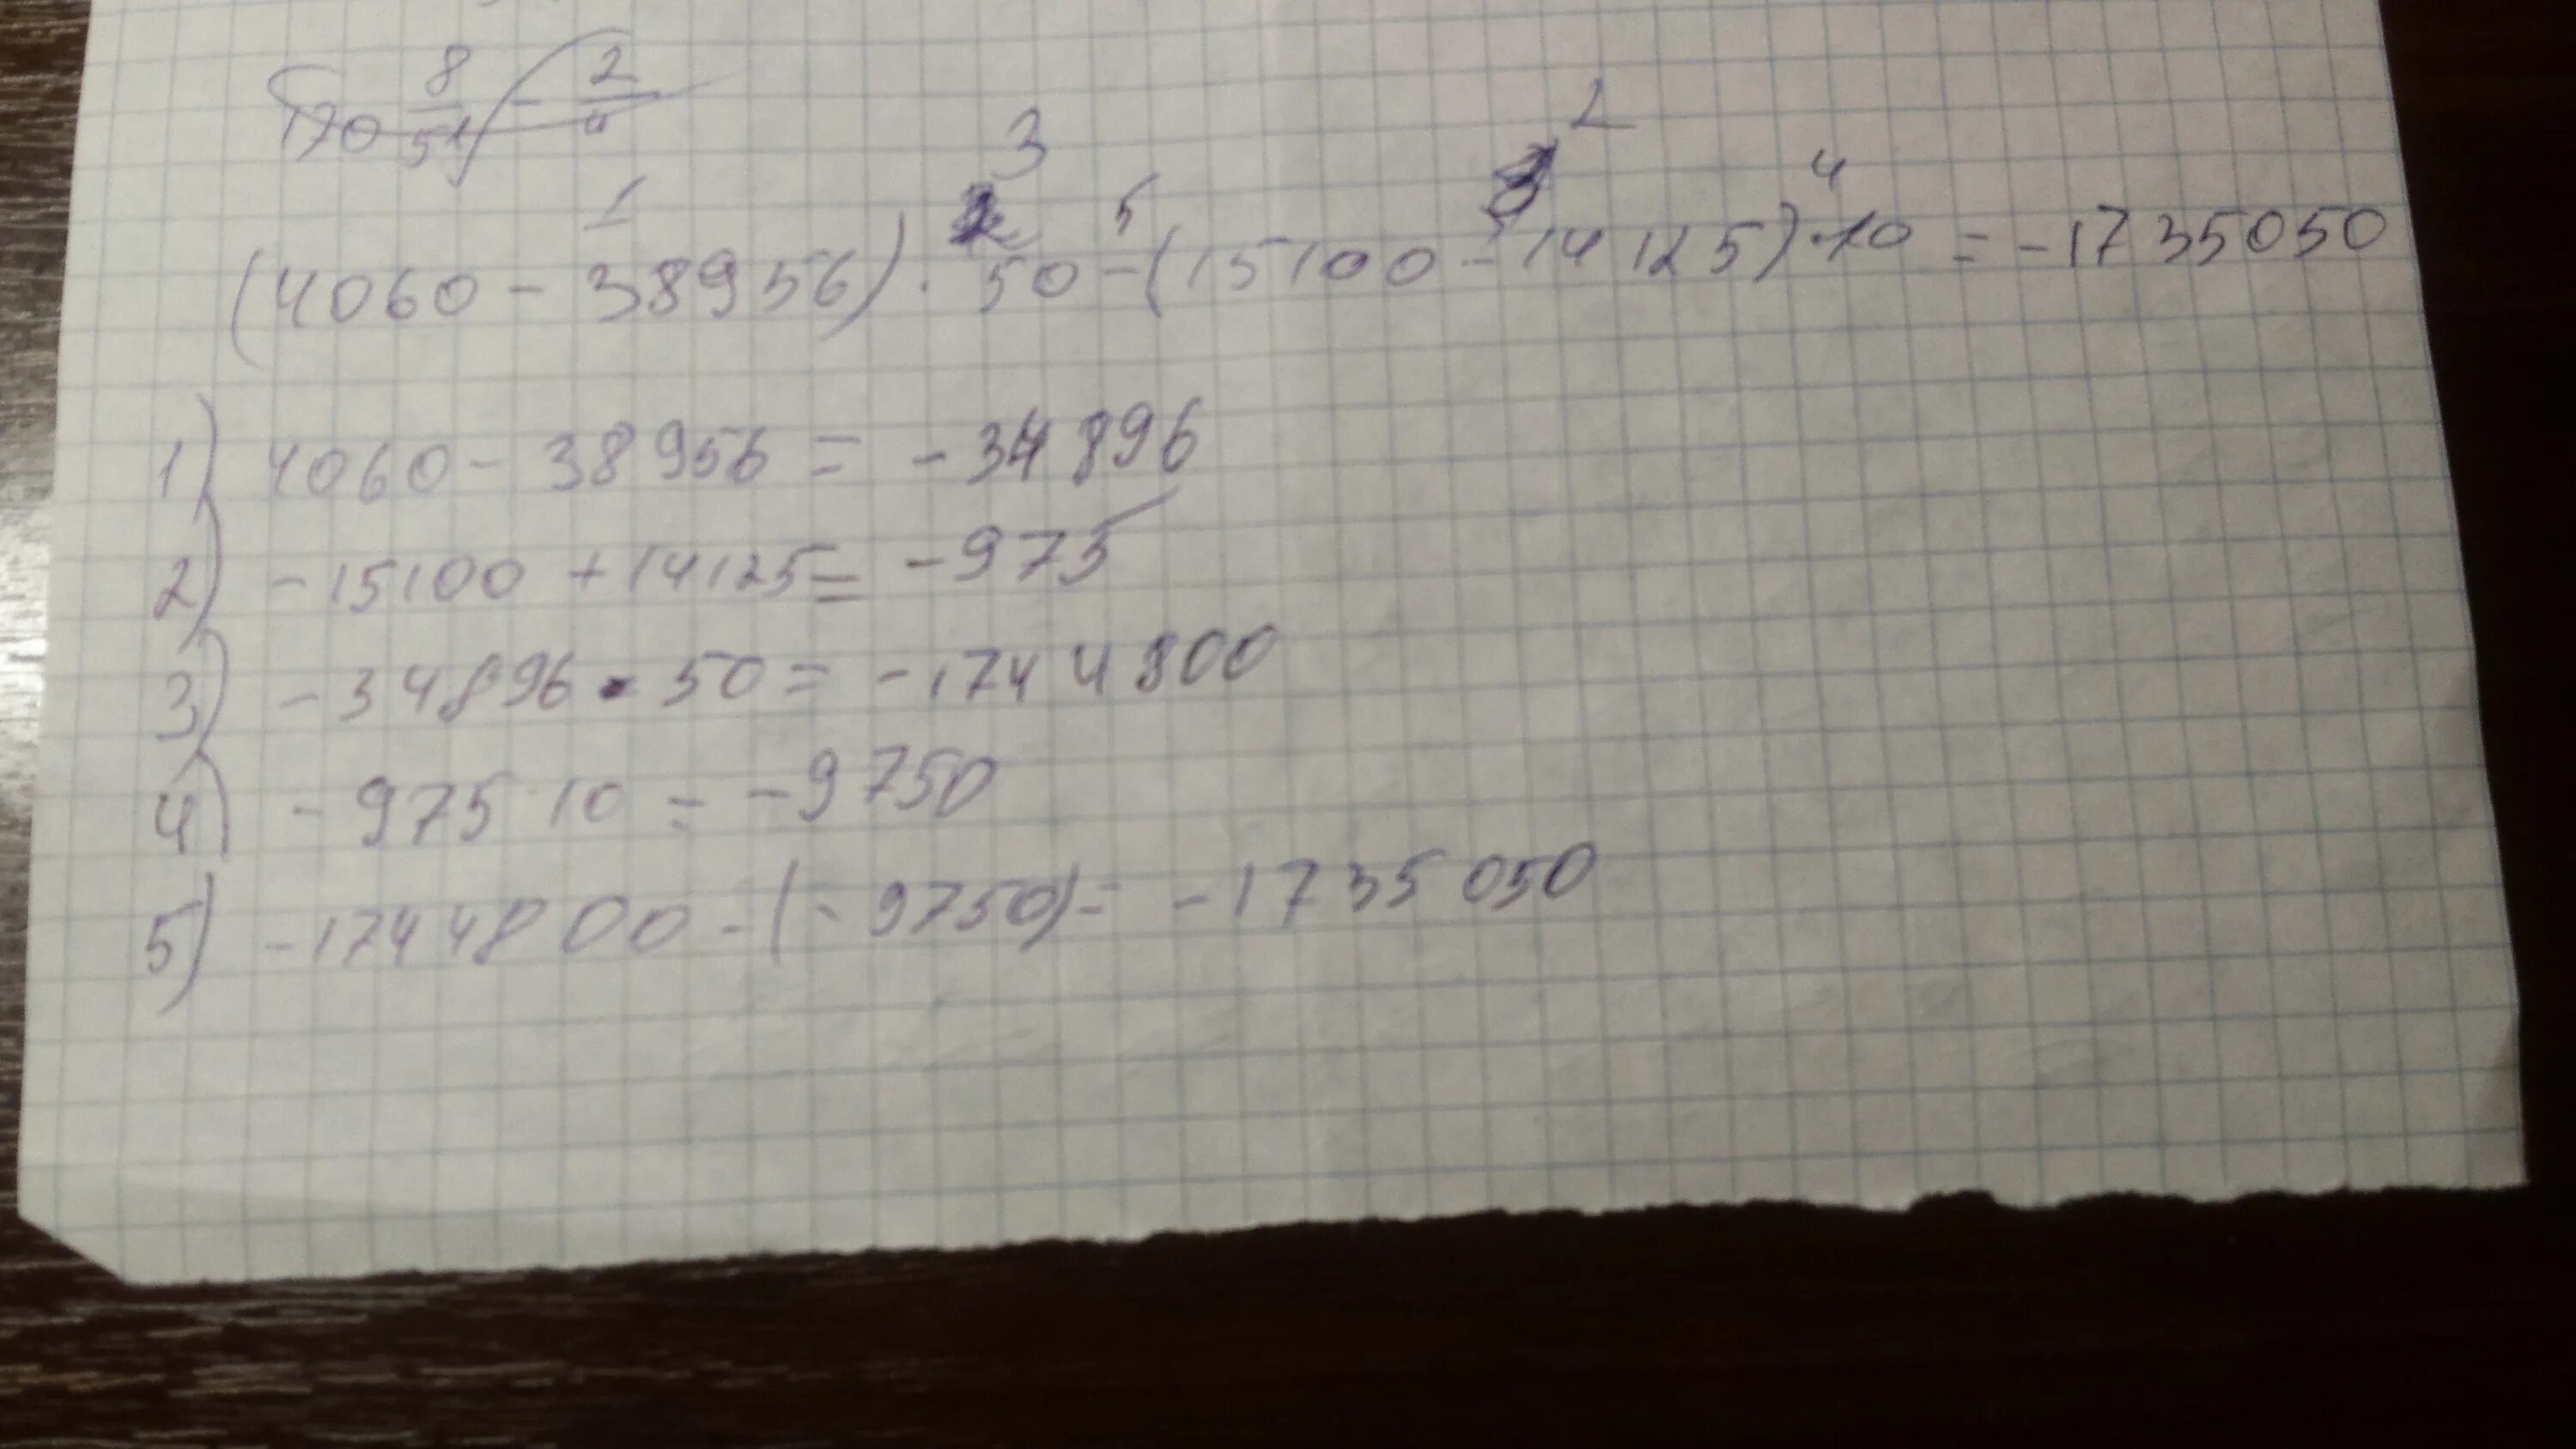 170 8/51 - 2/4
1 3 5 2 4
(4060 - 38956) · 50 - (15100 - 14125) · 10 = -1735050
1) 4060 - 38956 = -34896
2) -15100 + 14125 = -975
3) -34896 · 50 = -1744800
4) -975 10 = -9750
5) -1744800 - (-9750) = -1735050